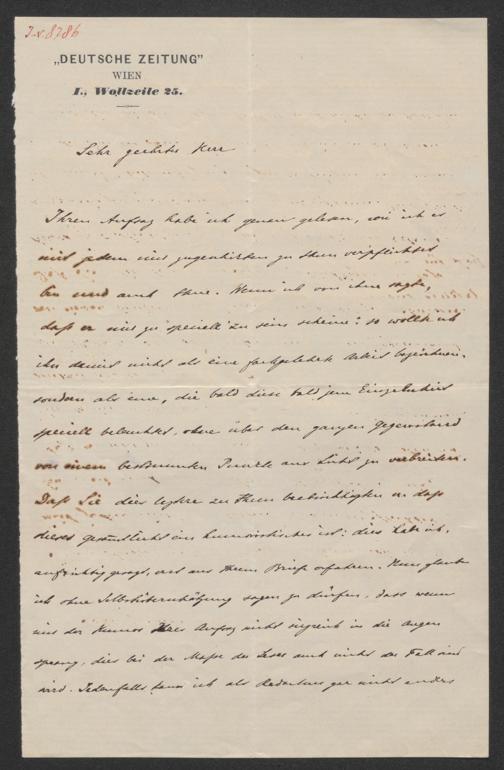 I.N. 8786
„DEUTSCHE ZEITUNG"
WIEN
I., Wollzeile 25.
Sehr geehrter Herr
Ihren Aufsaz habe ich genau gelesen, wie ich es
mit jedem mir zugeschickten zu thun verpflichtet
bin und auch thue. Wenn ich von ihm sagte,
daß er mir zu speciell zu sein scheine: so wollte ich
ihn damit nicht als eine fachgelehrte Arbeit bezeichnen,
sondern als eine, die bald diese bald jene Einzelheit
speciell beleuchtet, ohne über den ganzen Gegenstand
von einem bestimmten Punkte aus Licht zu verbreiten.
Daß Sie dies leztere zu thun beabsichtigten u. daß
dieses ein humoristisches ist: dies habe ich,
aufrichtig gesagt, erst aus Ihrem Briefe erfahren. Nun glaube
ich ohne Selbstüberschätzung sagen zu dürfen, dass wenn
mir der Humor Ihres Aufsaz nicht in die Augen
sprang, dies bei der Masse der Leser auch nicht der Fall sein
wird. Jedenfalls kann ich als Redacteur gar nicht anders